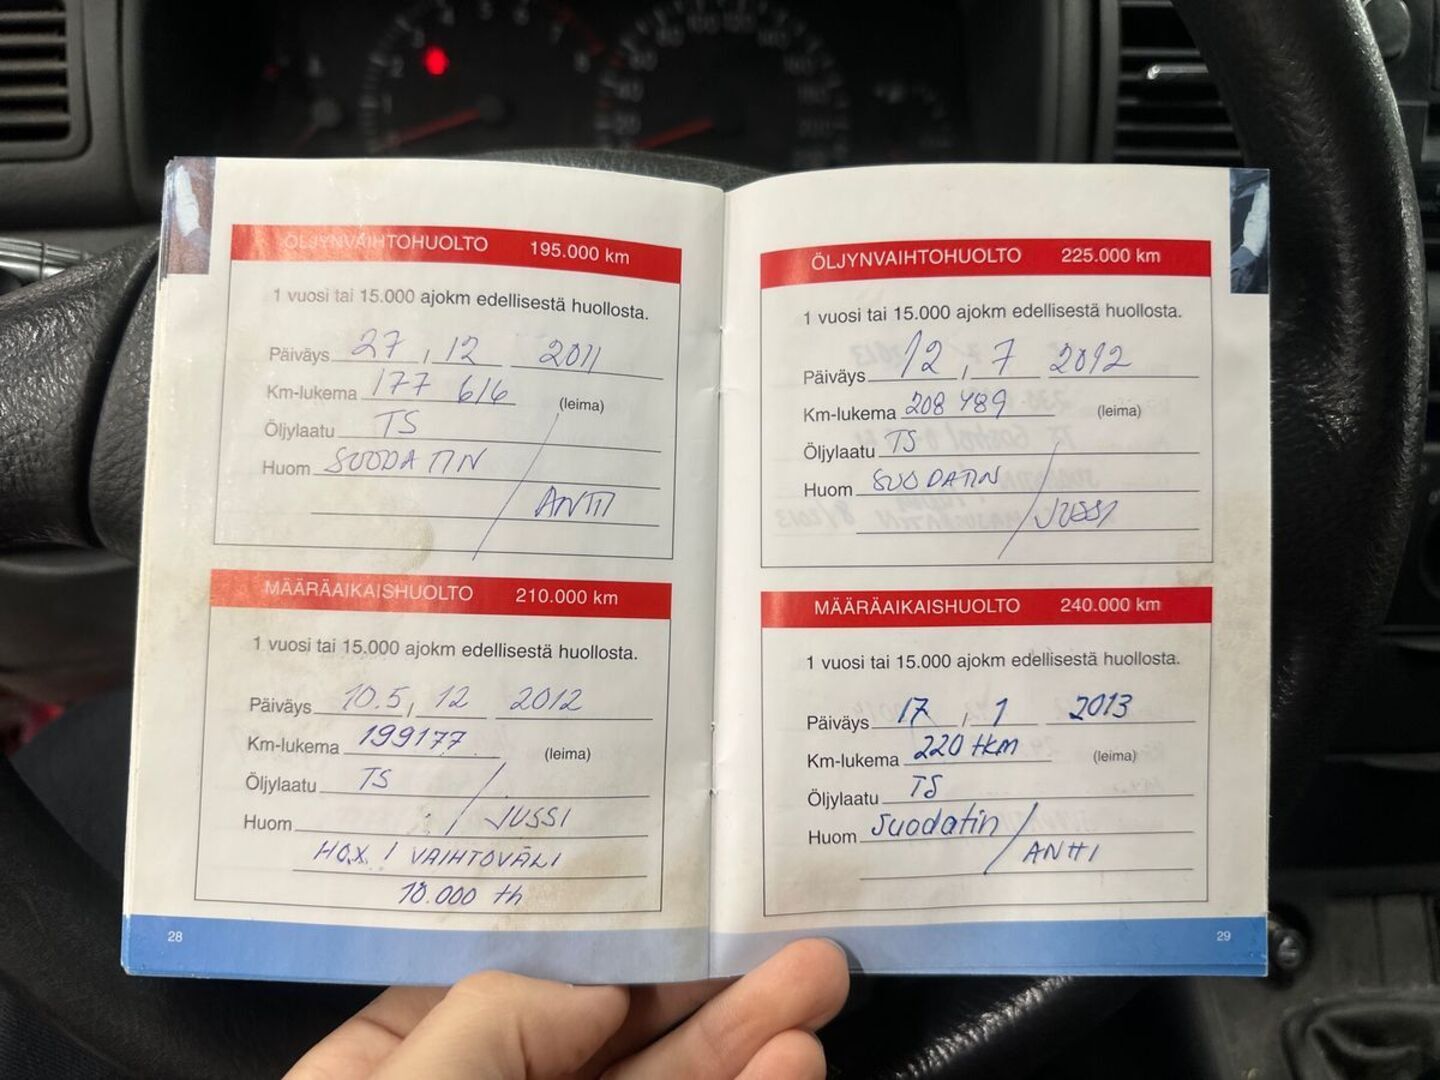 ÖLJYNVAIHTOHUOLTO 195.000 km
1 vuosi tai 15.000 ajokm edellisestä huollosta.
Päiväys 27 , 12 2011
Km-lukema 177 616 (leima)
Öljylaatu TS
Huom SUODATIN
ANTTI
MÄÄRÄAIKAISHUOLTO 210.000 km
1 vuosi tai 15.000 ajokm edellisestä huollosta.
Päiväys 10.5, 12 2012
Km-lukema 199177 (leima)
Öljylaatu TS
Huom JUSSI
HOX ! VAIHTOVÄLI
10.000 th
28
ÖLJYNVAIHTOHUOLTO 225.000 km
1 vuosi tai 15.000 ajokm edellisestä huollosta.
Päiväys 12 , 7 2012
Km-lukema 208 489 (leima)
Öljylaatu TS
Huom SUODATIN
JUSSI
MÄÄRÄAIKAISHUOLTO 240.000 km
1 vuosi tai 15.000 ajokm edellisestä huollosta.
Päiväys 17 , 1 2013
Km-lukema 220 tkm (leima)
Öljylaatu TS
Huom Suodatin
ANTTI
29